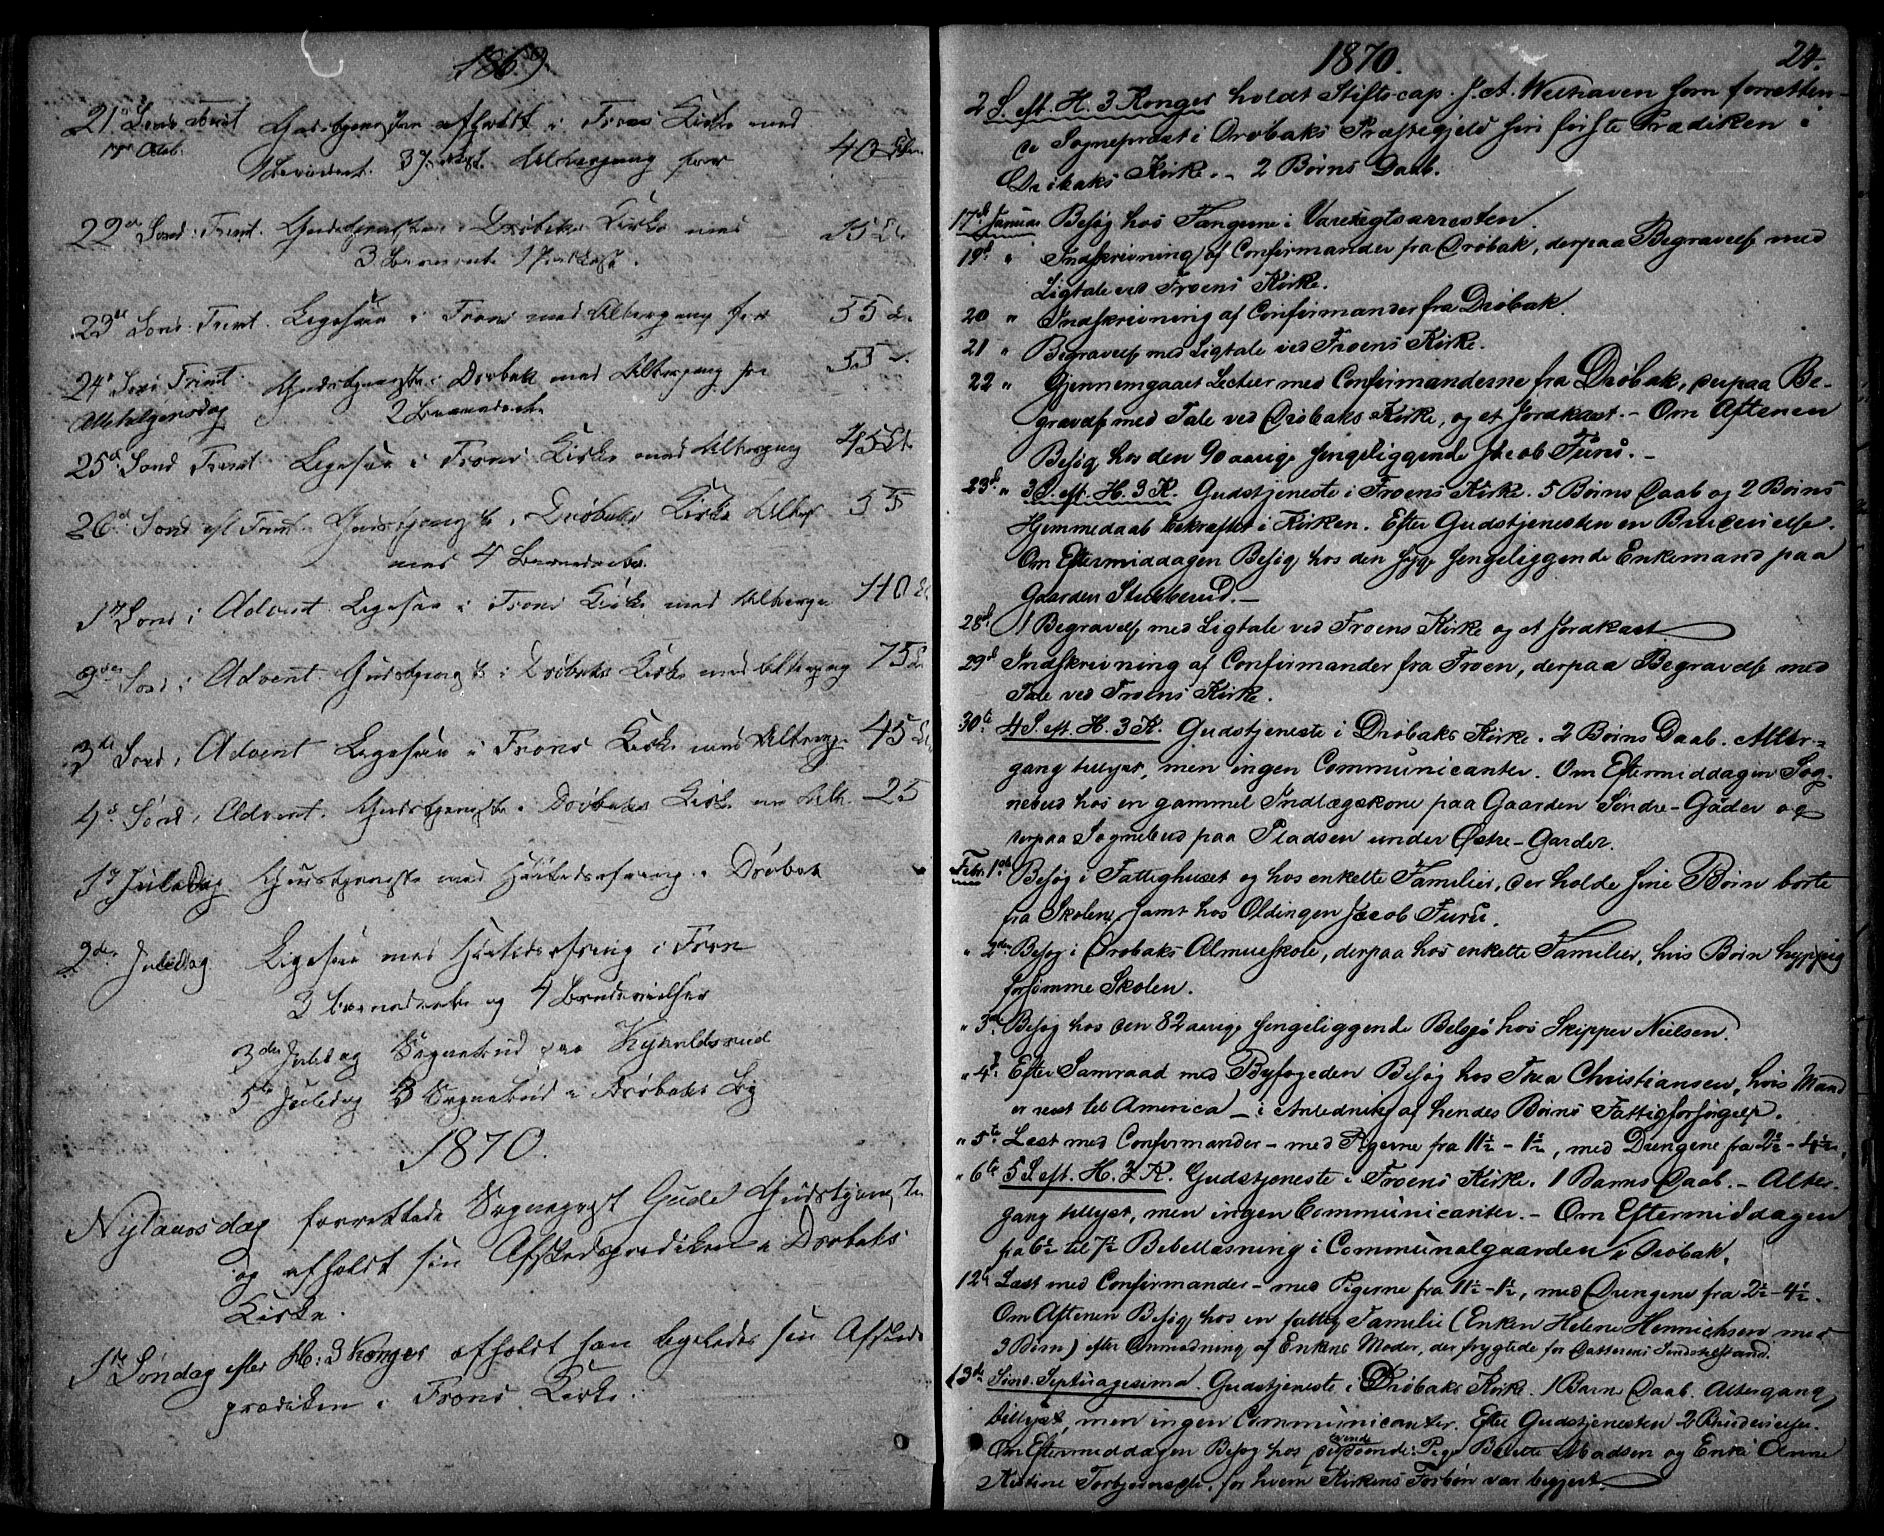 1869.
21 Sønd. Trint Gudstjenesten afholdt i Froens Kirke med
40
22de Sønd. Trint. Gudstjeneste i Drøbaks Kirke med
3
23de Sønd. Trint. Ligesaa i Froens med Altergang for 55
24de Sønd. Trint. Gudstjeneste i Drøbak med Altergang for 55
Allehelgensdag 2 Barnedaab
25de Sønd Trint. Ligesaa i Froens Kirke med Altergang 45
26de Sønd eft Trint. Gudstjeneste i Drøbaks Kirke Alterg 55
med 4 Barnedaab
1ste Sønd i Advent. Ligesaa i Froens Kirke med Alterga 110
2den Sønd i Advent. Gudstjeneste i Drøbaks Kirke med Altergang 75
3die Sønd i Advent Ligesaa i Froens Kirke med Alterg. 45
4de Sønd. i Advent. Gudstjeneste i Drøbaks Kirke 25
1ste Juledag Gudstjeneste med Høitidsofring i Drøbak
2den Juledag Ligesaa med Høitidsofring i Froen
3 Barnedaab og 4 Brudevielser
3die Juledag Sognebud paa
5te Juledag 3 Sognebud i Drøbaks By
1870.
Nytaarsdag forrettede Sogneprest Gude Gudstjeneste
og afholdt sin Afskedsprædiken i Drøbaks
Kirke.
1ste Søndag efter H: 3 Konger afholdt han ligeledes sin Afskeds
prædiken i Froens Kirke.
1870. 24.
2 S. eft. H. 3 Konger holdt Stiftscap. J. A. Welhaven som forretten-
de Sognepræst i Drøbaks Præstegjeld sin første Prædiken i
Drøbaks Kirke. - 2 Børns Daab.
17de Januar Besøg hos Fangerne i Varetægtsarresten.
19de " Indskrivning af Confirmander fra Drøbak, derpaa Begravelse med
Ligtale ved Froens Kirke.
20 " Indskrivning af Confirmander fra Drøbak.
21 " Begravelse med Ligtale ved Froens Kirke.
22 " Gjennemgaaet Lectier med Confirmanderne fra Drøbak, derpaa Be-
gravelse med Tale ved Drøbaks Kirke, og et Jordkast. - Om Aftenen
Besøg hos den 90 aarige sengeliggende Jacob Furu. -
23de " 3 S. eft. H. 3 K. Gudstjeneste i Froens Kirke. 5 Børns Daab og 2 Børns
Hjemmedaab bekræftet i Kirken. Efter Gudstjenesten en Brudevielse.
Om Eftermiddagen Besøg hos den syge sengeliggende Enkemand paa
Gaarden Stubberud. -
28de 1 Begravelse med Ligtale ved Froens Kirke og et Jordkast.
29de Indskrivning af Confirmander fra Froen, derpaa Begravelse med
Tale ved Froens Kirke.
30te 4 S. eft. H. 3 K. Gudstjeneste i Drøbaks Kirke. 2 Børns Daab. Alter-
gang tillyst, men ingen Communicanter. Om Eftermiddagen Sog-
nebud hos en gammel Indlægskone paa Gaarden Søndre-Gåder og
derpaa Sognebud paa Pladsen under Østre-Garder.
Febr. 1ste Besøg i Fattighuset og hos enkelte Familier, der holde sine Børn borte
fra Skolen, samt hos Oldingen Jacob Furu.
" 2den Besøg i Drøbaks Almueskole, derpaa hos enkelte Familier, hvis Børn hyppig
forsømme Skolen.
" 3die Besøg hos den 82 aarige sengeliggende Belsjø hos Skipper Nielsen.
" 4de Efter Samraad med Byfogeden Besøg hos Thea Christiansen, hvis Mand
er reist til America - i Anledning af hendes Børns Fattigforsørgelse.
" 5te Læst med Confirmander - med Pigerne fra 11½ - 1½, med Drengene fra 2½ - 4½.
" 6te 5 S. eft. H. 3 K. Gudstjeneste i Froens Kirke. 1 Barns Daab. - Alter-
gang tillyst, men ingen Communicanter. - Om Eftermiddagen
fra 6½ til 7½ Bibellæsning i Communalgaarden i Drøbak.
12te Læst med Confirmander - med Pigerne fra 11½ - 1½, med Drengene fra 2½ - 4½.
Om Aftenen Besøg hos en fattig Familie (Enken Helene Hennichsen med
3 Børn) efter Anmodning af Enkens Moder, der frygtede for Datterens Sindstilstand.
13de Sønd. Septuagesima. Gudstjeneste i Drøbaks Kirke. 1 Barns Daab. Altergang
tillyst, men ingen Communicanter. Efter Gudstjenesten 2 Brudevielser.
Om Eftermiddagen Besøg hos Pige Berthe Madsen og Enke Anne
Kistine Torbjørnsdtr. for hvem Kirkens Forbøn var begjert.